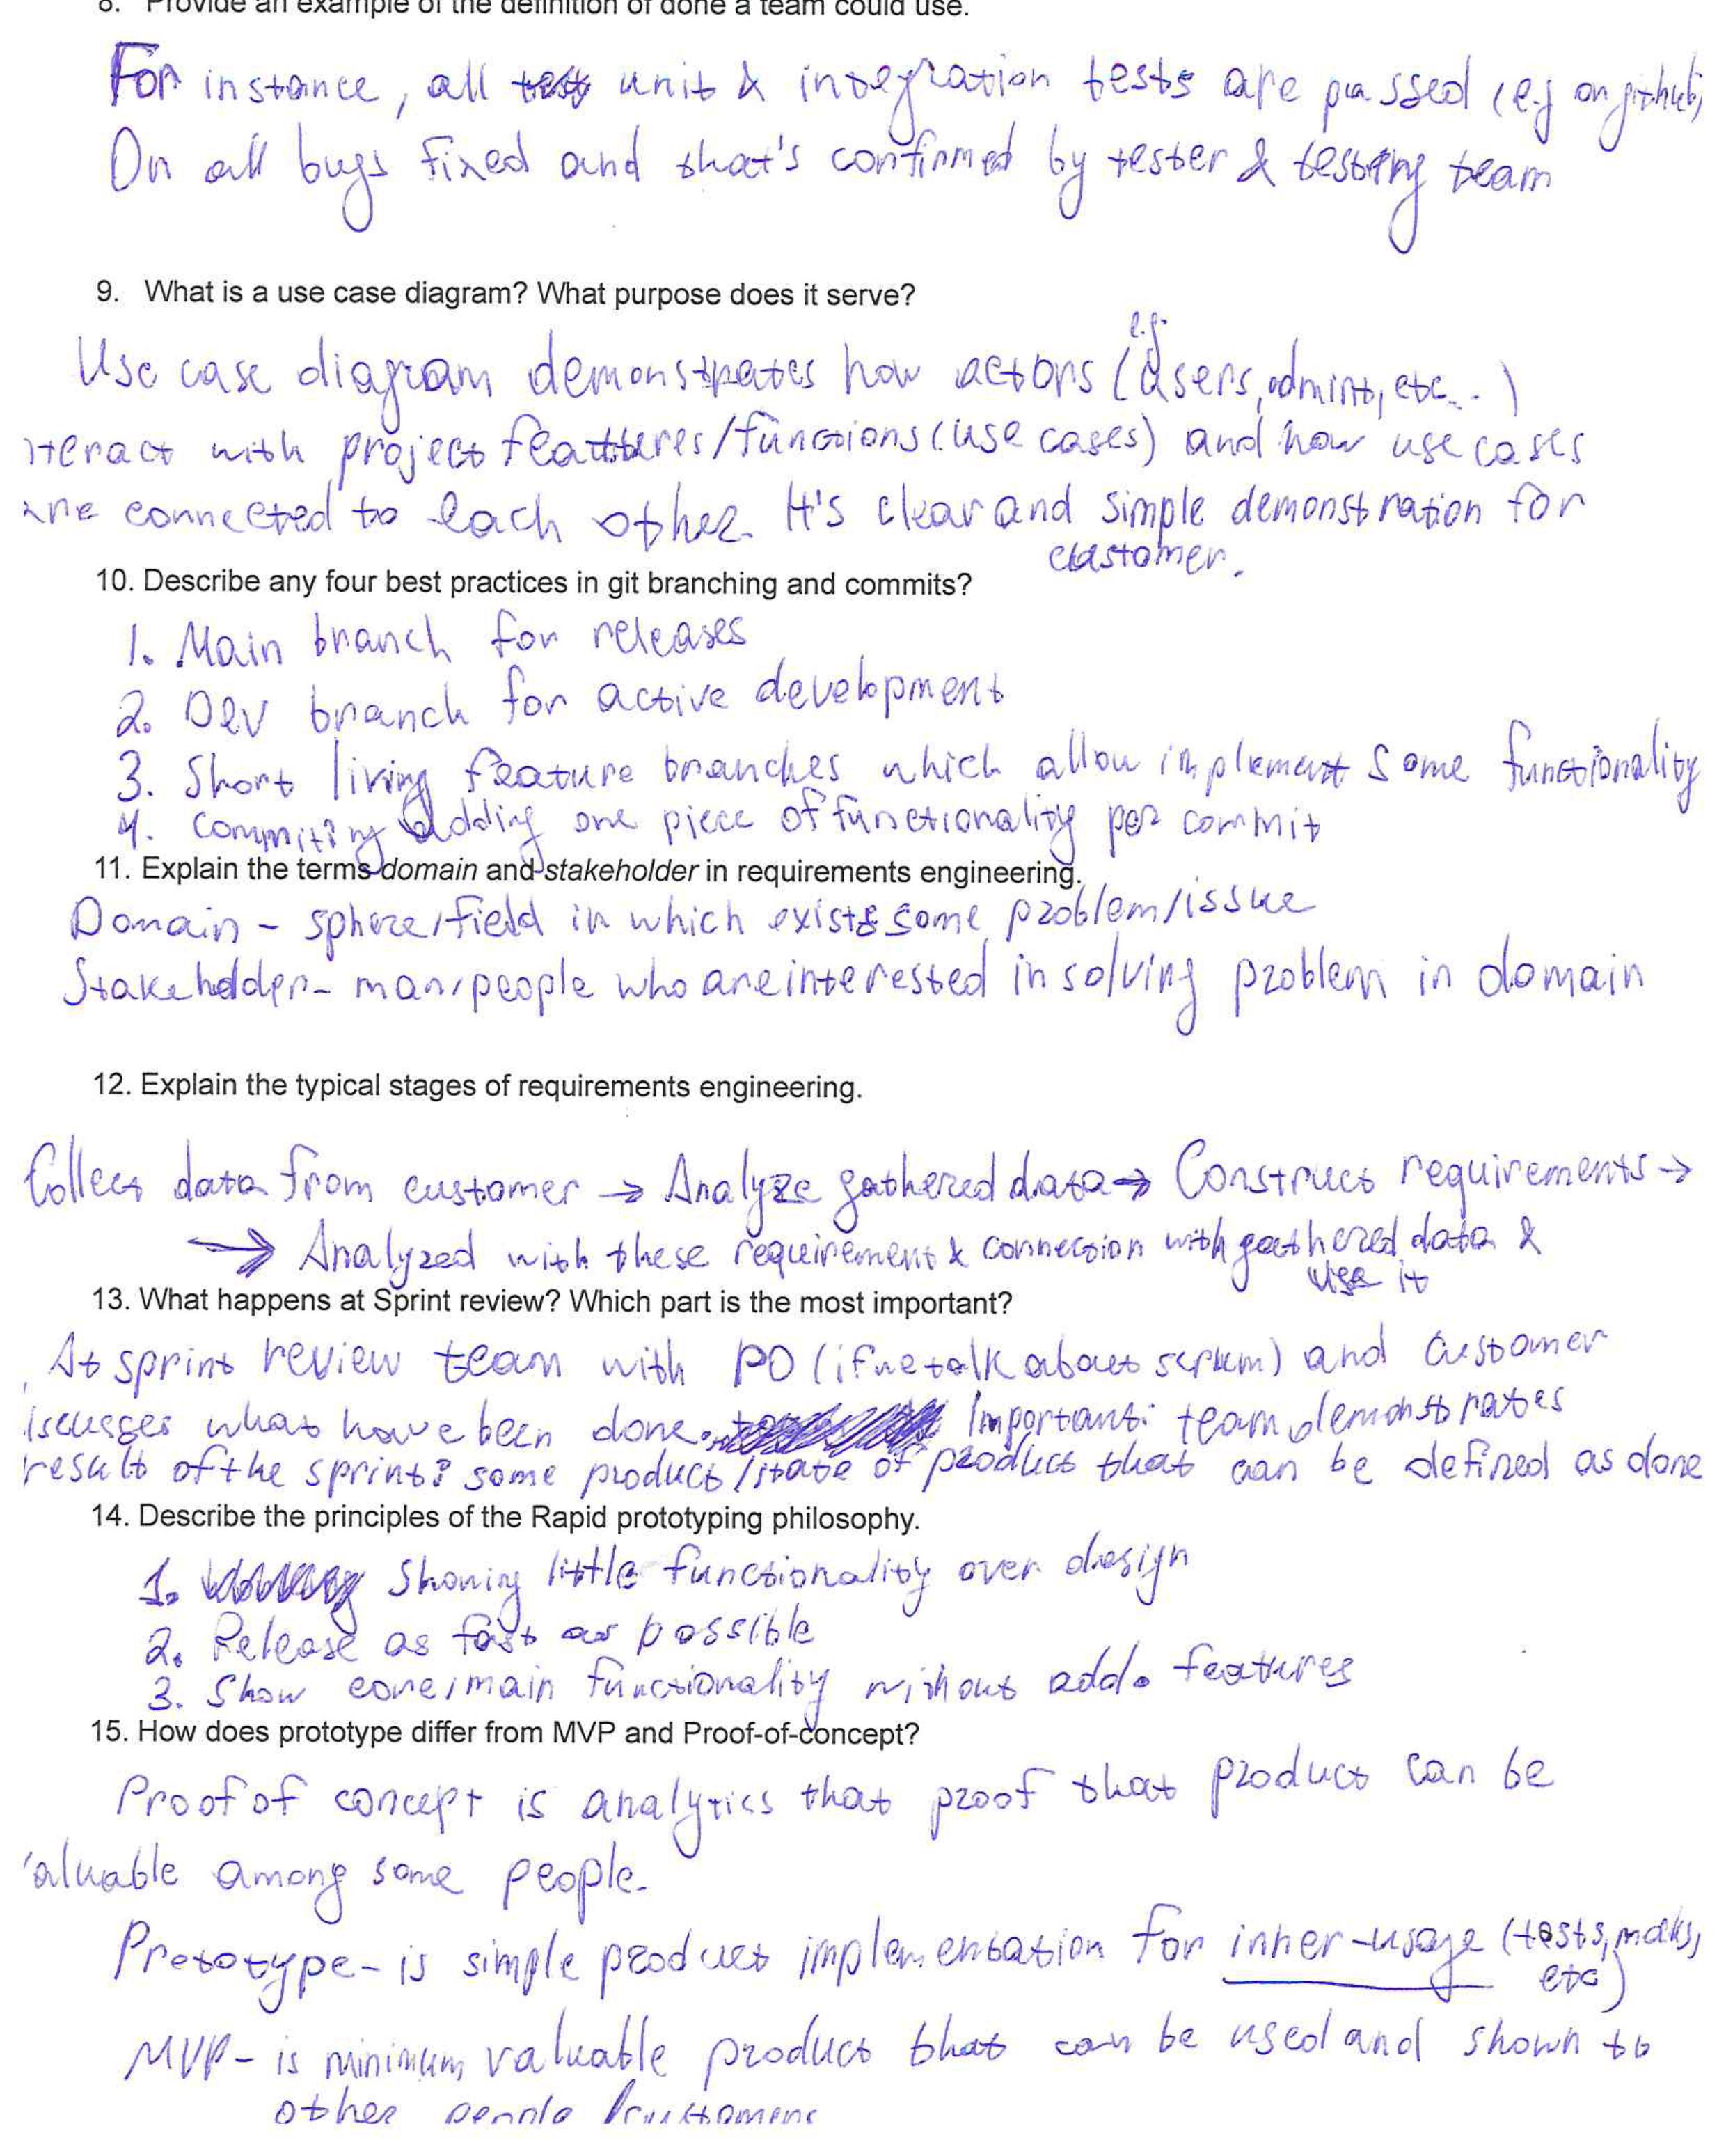 8. Provide an example of the definition of done a team could use.
For instance, all unit & integration tests are passed (e.g on github)
Or all bugs fixed and that's confirmed by tester & testing team
9. What is a use case diagram? What purpose does it serve?
e.g.
Use case diagram demonstrates how actors (users, admins, etc...)
nteract with project features/functions (use cases) and how use cases
are connected to each other. It's clear and simple demonstration for
customer.
10. Describe any four best practices in git branching and commits?
1. Main branch for releases
2. Dev branch for active development
3. Short living feature branches which allow implement some functionality
4. Commiting adding one piece of functionality per commit
11. Explain the terms domain and stakeholder in requirements engineering.
Domain - sphere/field in which exists some problem/issue
Stakeholder - man/people who are interested in solving problem in domain
12. Explain the typical stages of requirements engineering.
Collect data from customer → Analyze gathered data → Construct requirements →
→ Analyzed with these requirement & connection with gathered data &
use it
13. What happens at Sprint review? Which part is the most important?
At sprint review team with PO (if we talk about scrum) and customer
iscusses what have been done. Important: team demonstrates
result of the sprint: some product/state of product that can be defined as done
14. Describe the principles of the Rapid prototyping philosophy.
1. Showing little functionality over design
2. Release as fast as possible
3. Show core/main functionality without add. features
15. How does prototype differ from MVP and Proof-of-concept?
Proof of concept is analytics that proof that product can be
valuable among some people.
Prototype - is simple product implementation for inner-usage (tests, moks,
etc)
MVP - is minimum valuable product that can be used and shown to
other people/customers